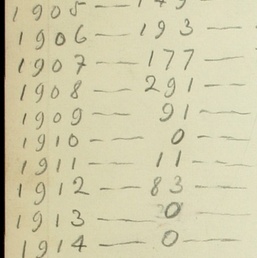 1905 — 149 —
1906 — 193 —
1907 — 177 —
1908 — 291 —
1909 — 91 —
1910 — 0 —
1911 — 11 —
1912 — 83 —
1913 — 0 —
1914 — 0 —